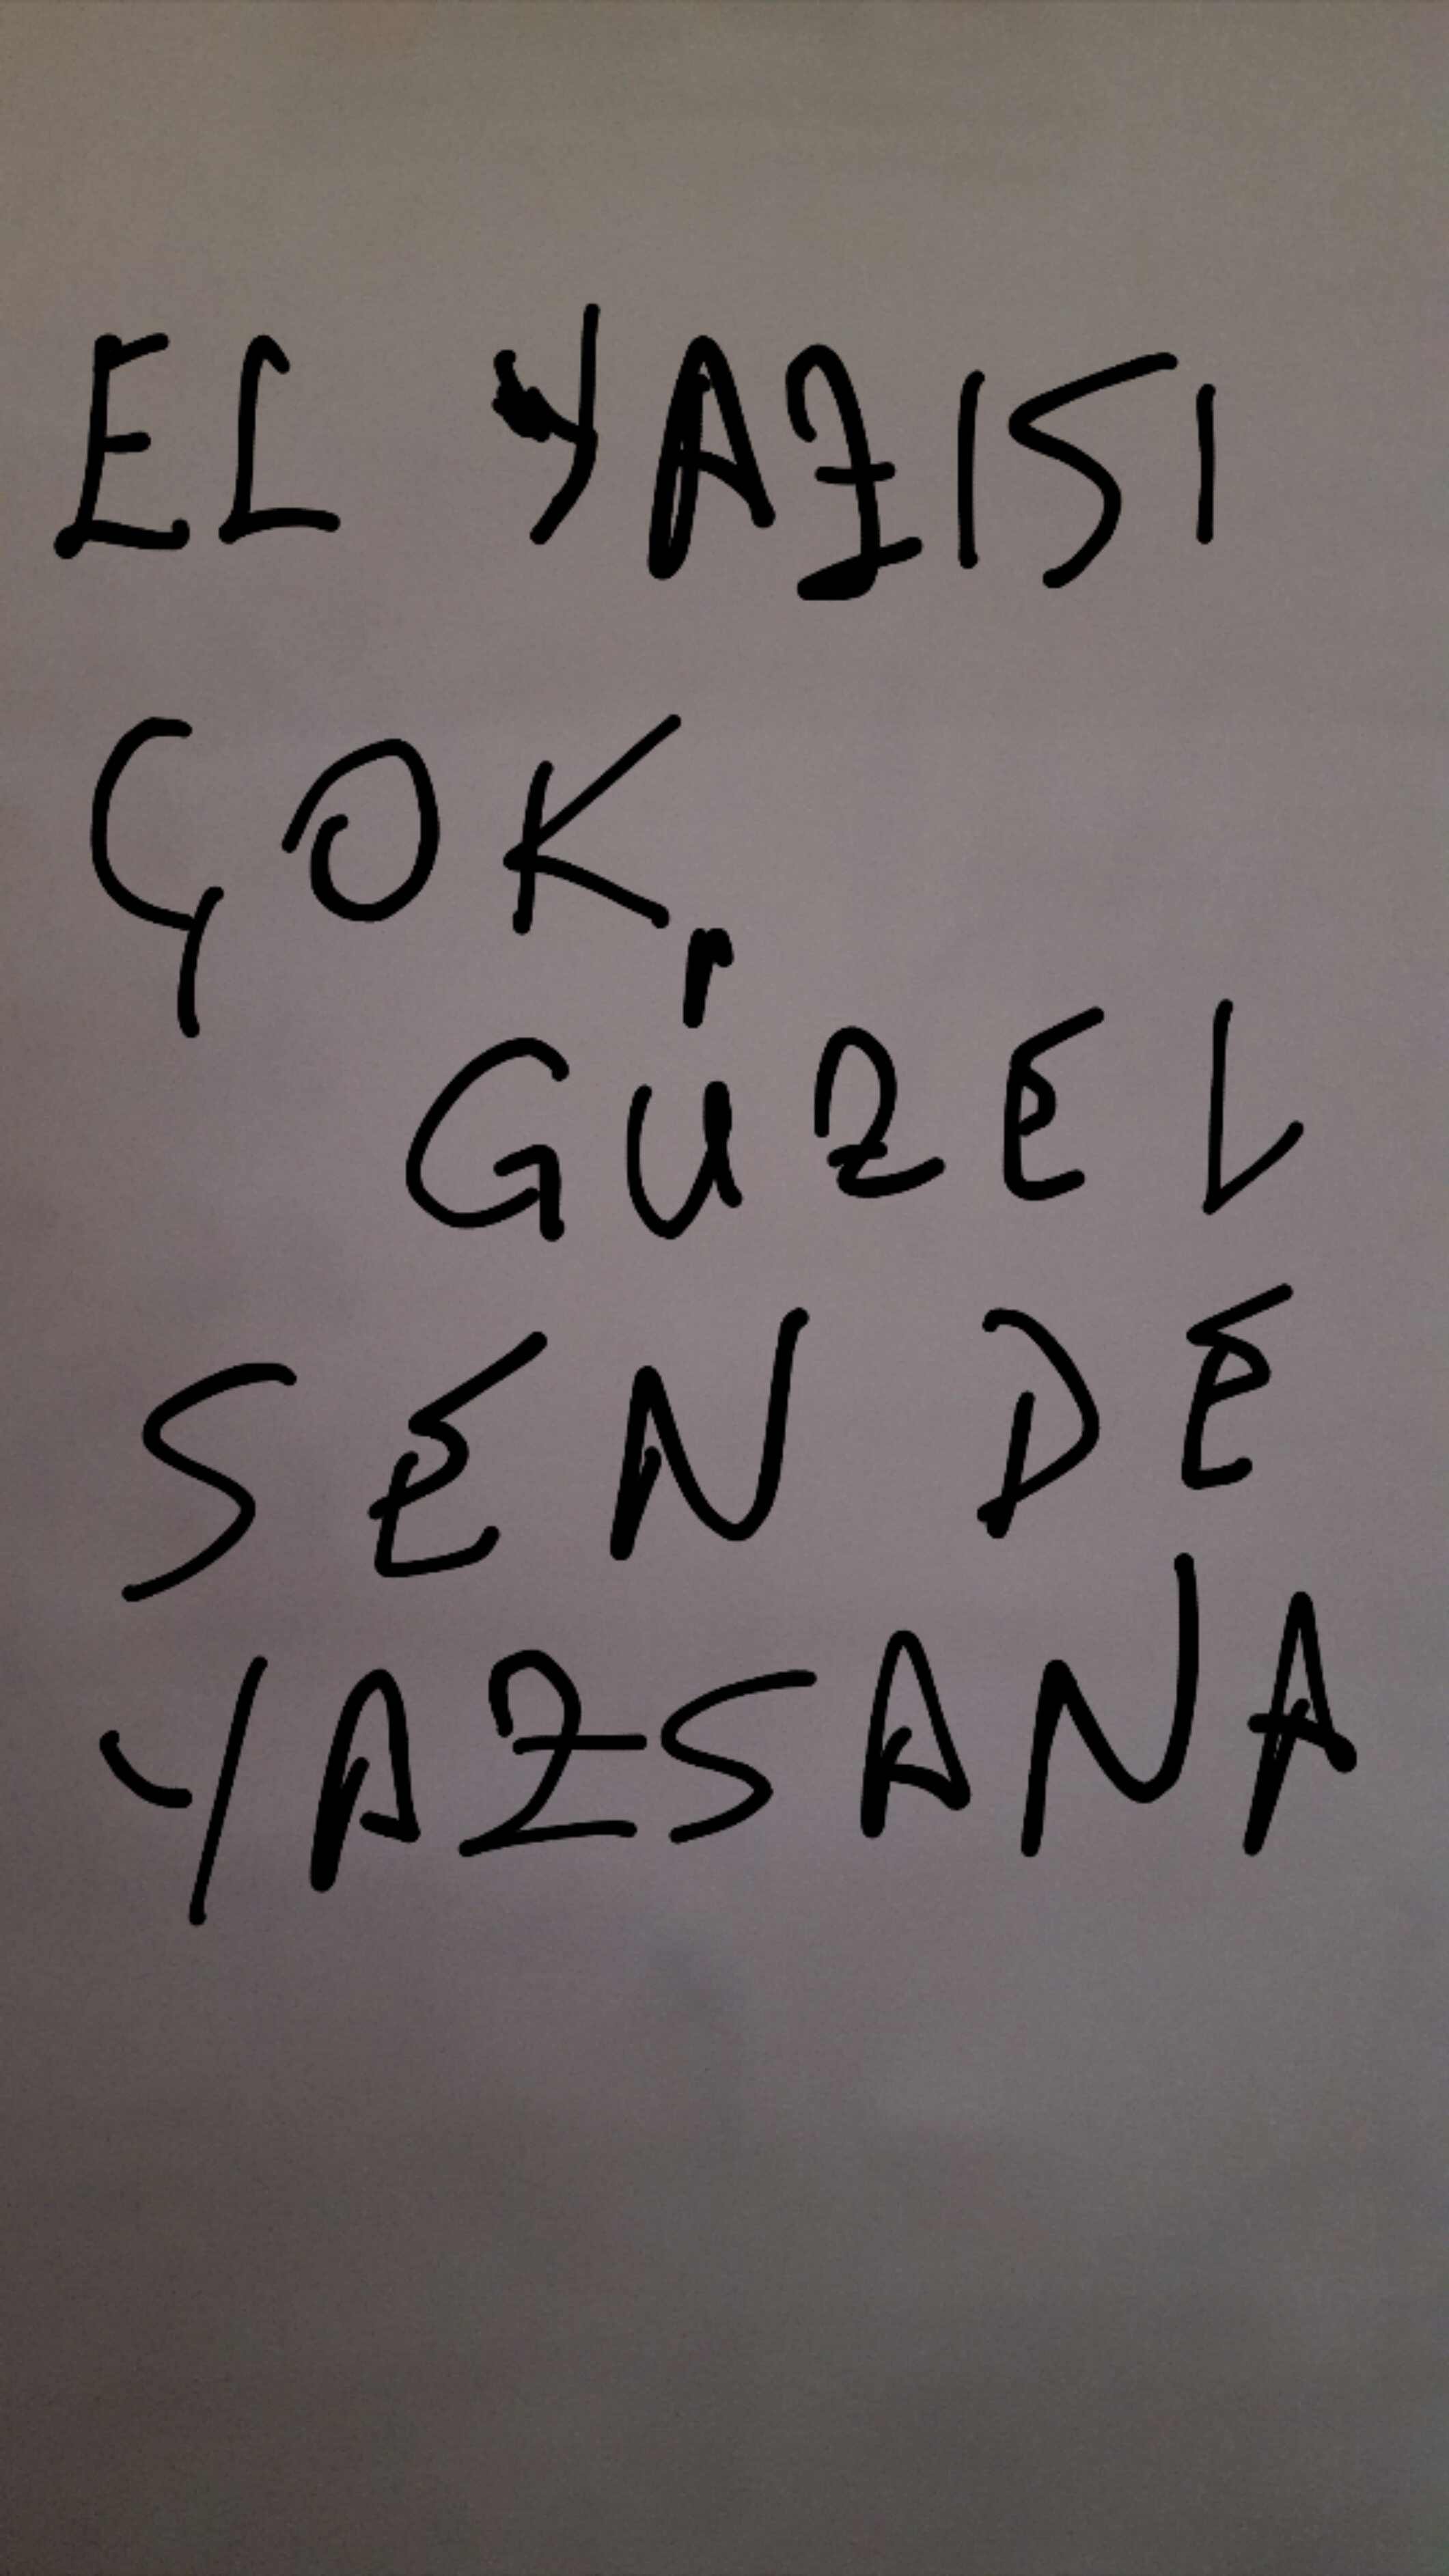 EL YAZISI
ÇOK
GÜZEL
SEN DE
YAZSANA